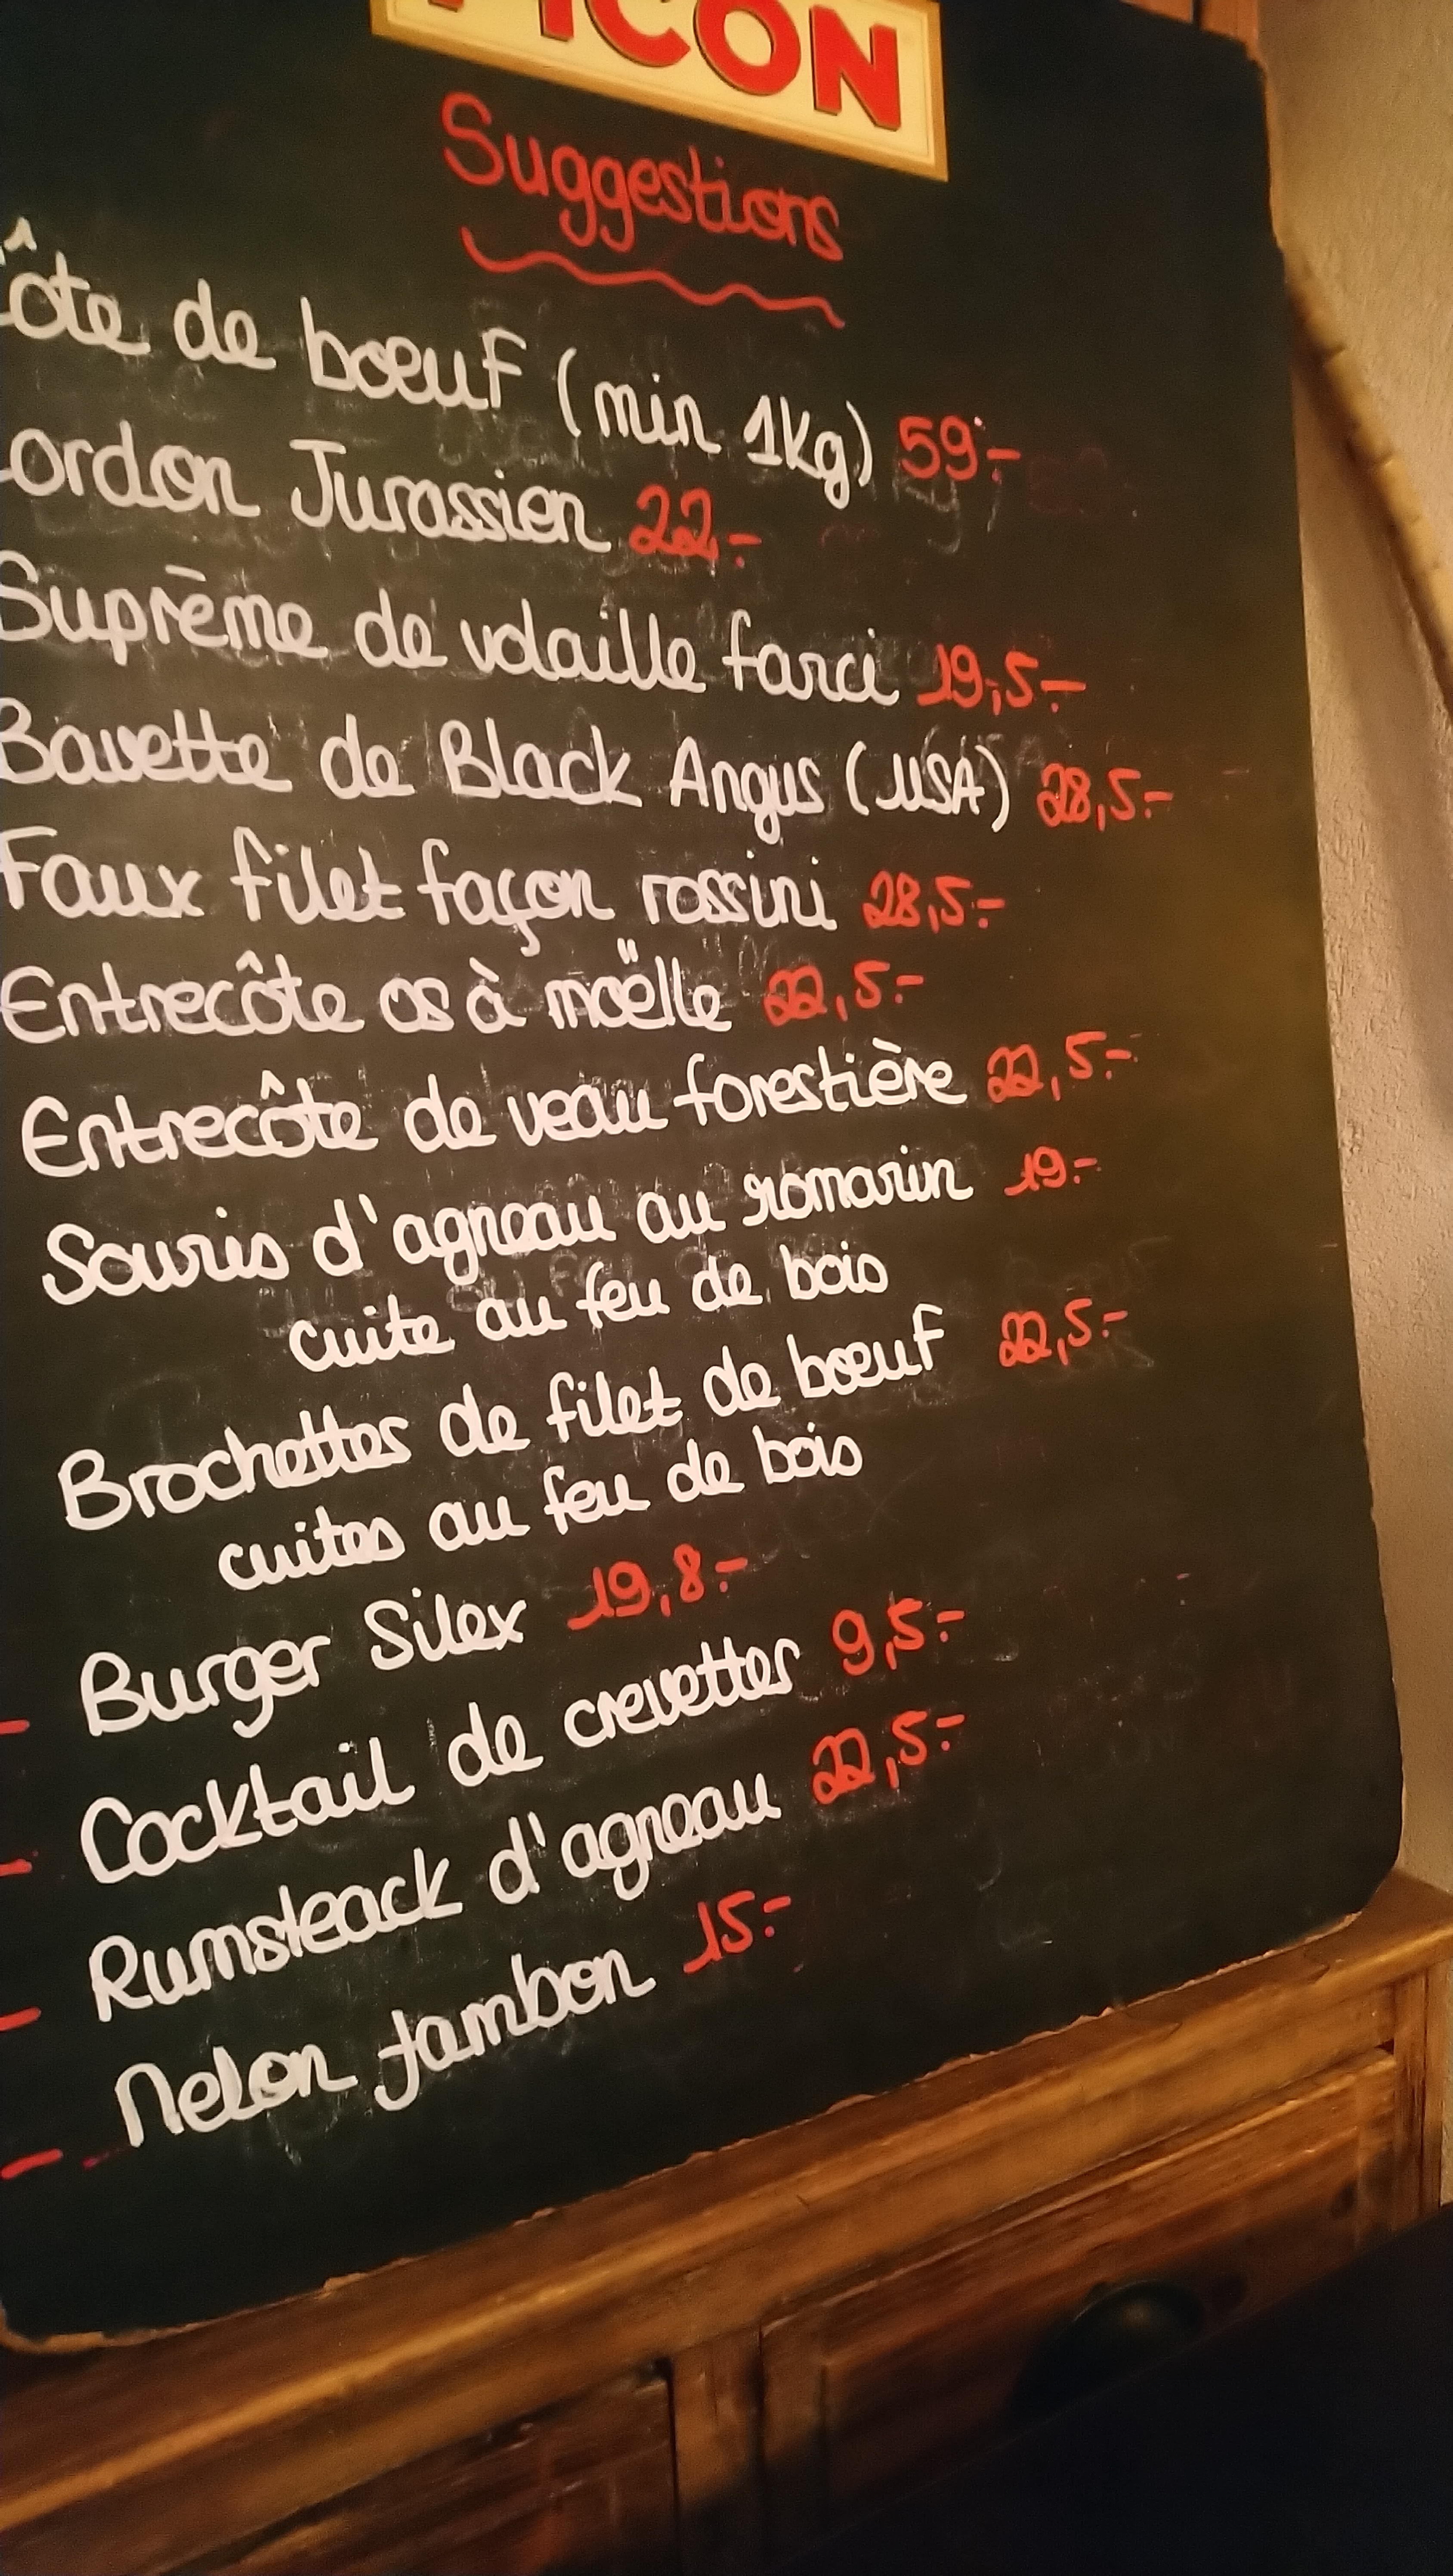 ICON
Suggestions
ôte de bœuf (min 1Kg) 59.-
ordon Jurassien 22.-
Suprême de volaille farci 19,5.-
Bavette de Black Angus (USA) 28,5.-
Faux filet façon rossini 28,5.-
Entrecôte os à moëlle 22,5.-
Entrecôte de veau forestière 22,5.-
Souris d'agneau au romarin 19.-
cuite au feu de bois
Brochettes de filet de bœuf 22,5.-
cuites au feu de bois
- Burger Silex 19,8.-
- Cocktail de crevettes 9,5.-
- Rumsteack d'agneau 22,5.-
- Melon Jambon 15.-